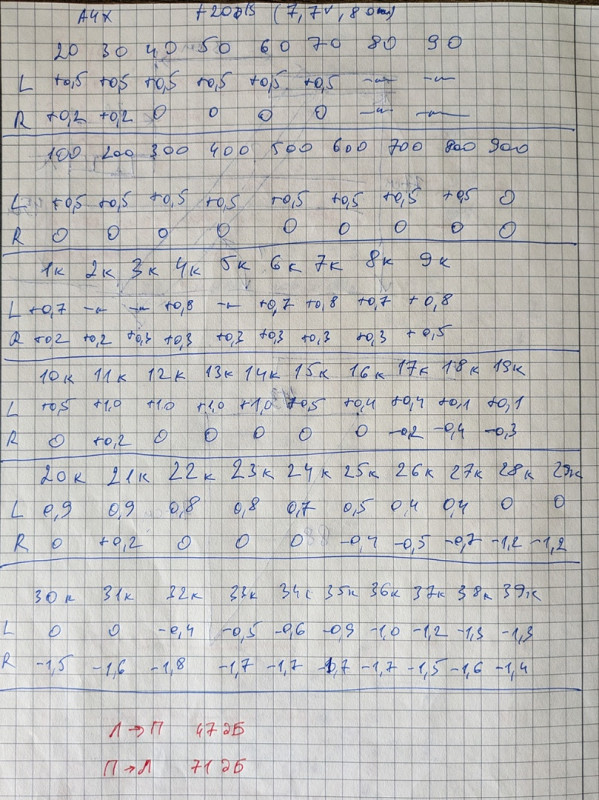 АЧХ +20дБ (7,7V, 8 Ом)
20 30 40 50 60 70 80 90
L +0,5 +0,5 +0,5 +0,5 +0,5 +0,5 –"– –"–
R +0,2 +0,2 0 0 0 0 –"– –"–
100 200 300 400 500 600 700 800 900
L +0,5 +0,5 +0,5 +0,5 +0,5 +0,5 +0,5 +0,5 0
R 0 0 0 0 0 0 0 0 0
1к 2к 3к 4к 5к 6к 7к 8к 9к
L +0,7 –"– –"– +0,8 –"– +0,7 +0,8 +0,7 +0,8
R +0,2 +0,2 +0,3 +0,3 +0,3 +0,3 +0,3 +0,3 +0,5
10к 11к 12к 13к 14к 15к 16к 17к 18к 19к
L +0,5 +1,0 +1,0 +1,0 +1,0 +0,5 +0,4 +0,4 +0,1 +0,1
R 0 +0,2 0 0 0 0 0 -0,2 -0,4 -0,3
20к 21к 22к 23к 24к 25к 26к 27к 28к 29к
L 0,9 0,9 0,8 0,8 0,7 0,5 0,4 0,4 0 0
R 0 +0,2 0 0 0 -0,4 -0,5 -0,7 -1,2 -1,2
30к 31к 32к 33к 34к 35к 36к 37к 38к 39к
L 0 0 -0,4 -0,5 -0,6 -0,9 -1,0 -1,2 -1,3 -1,3
R -1,5 -1,6 -1,8 -1,7 -1,7 -1,7 -1,7 -1,5 -1,6 -1,4
Л→П 47дБ
П→Л 71дБ